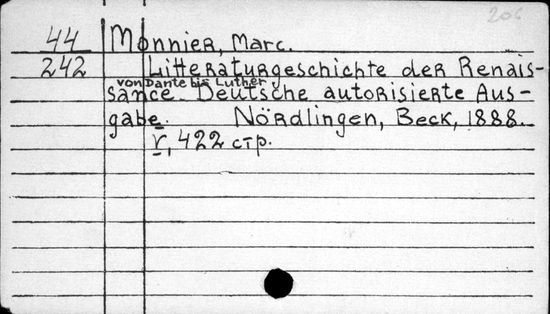 206
44 Monnier, Marc.
242 Litteraturgeschichte der Renais-
von Dante bis Luther
sance. Deutsche autorisierte Aus-
gabe. Nördlingen, Beck, 1888.
V, 422 стр.